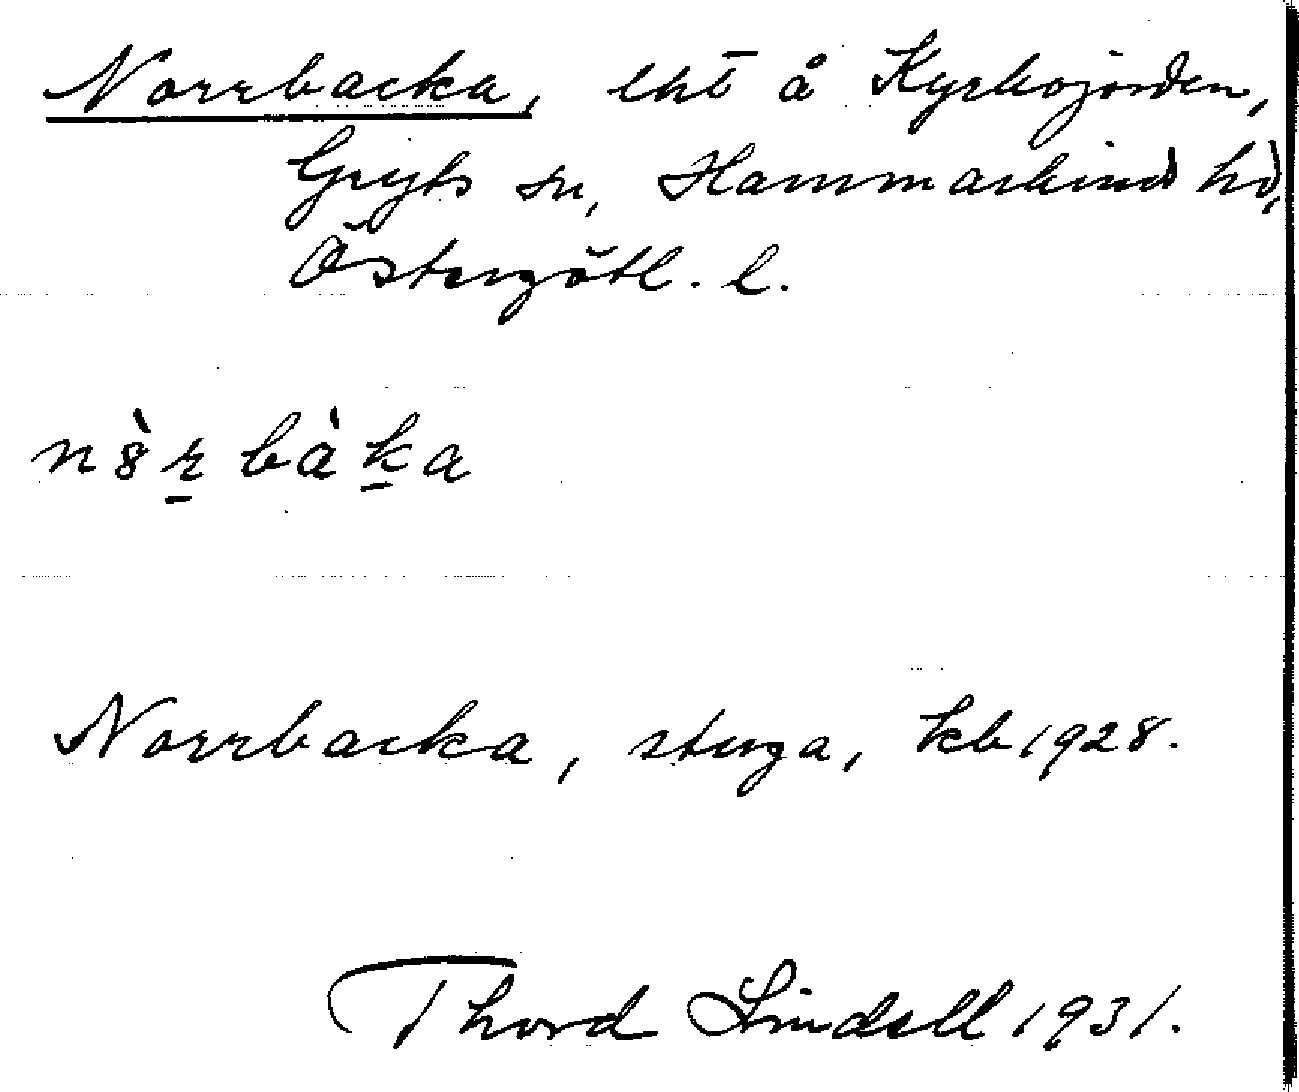 Norrbacka, lht å Kyrkojorden,
Gryts sn, Hammarkinds hd,
Östergötl. l.
n8̀r̲bàk̲a
Norrbacka, stuga, kb 1928.
Thord Lindell 1931.